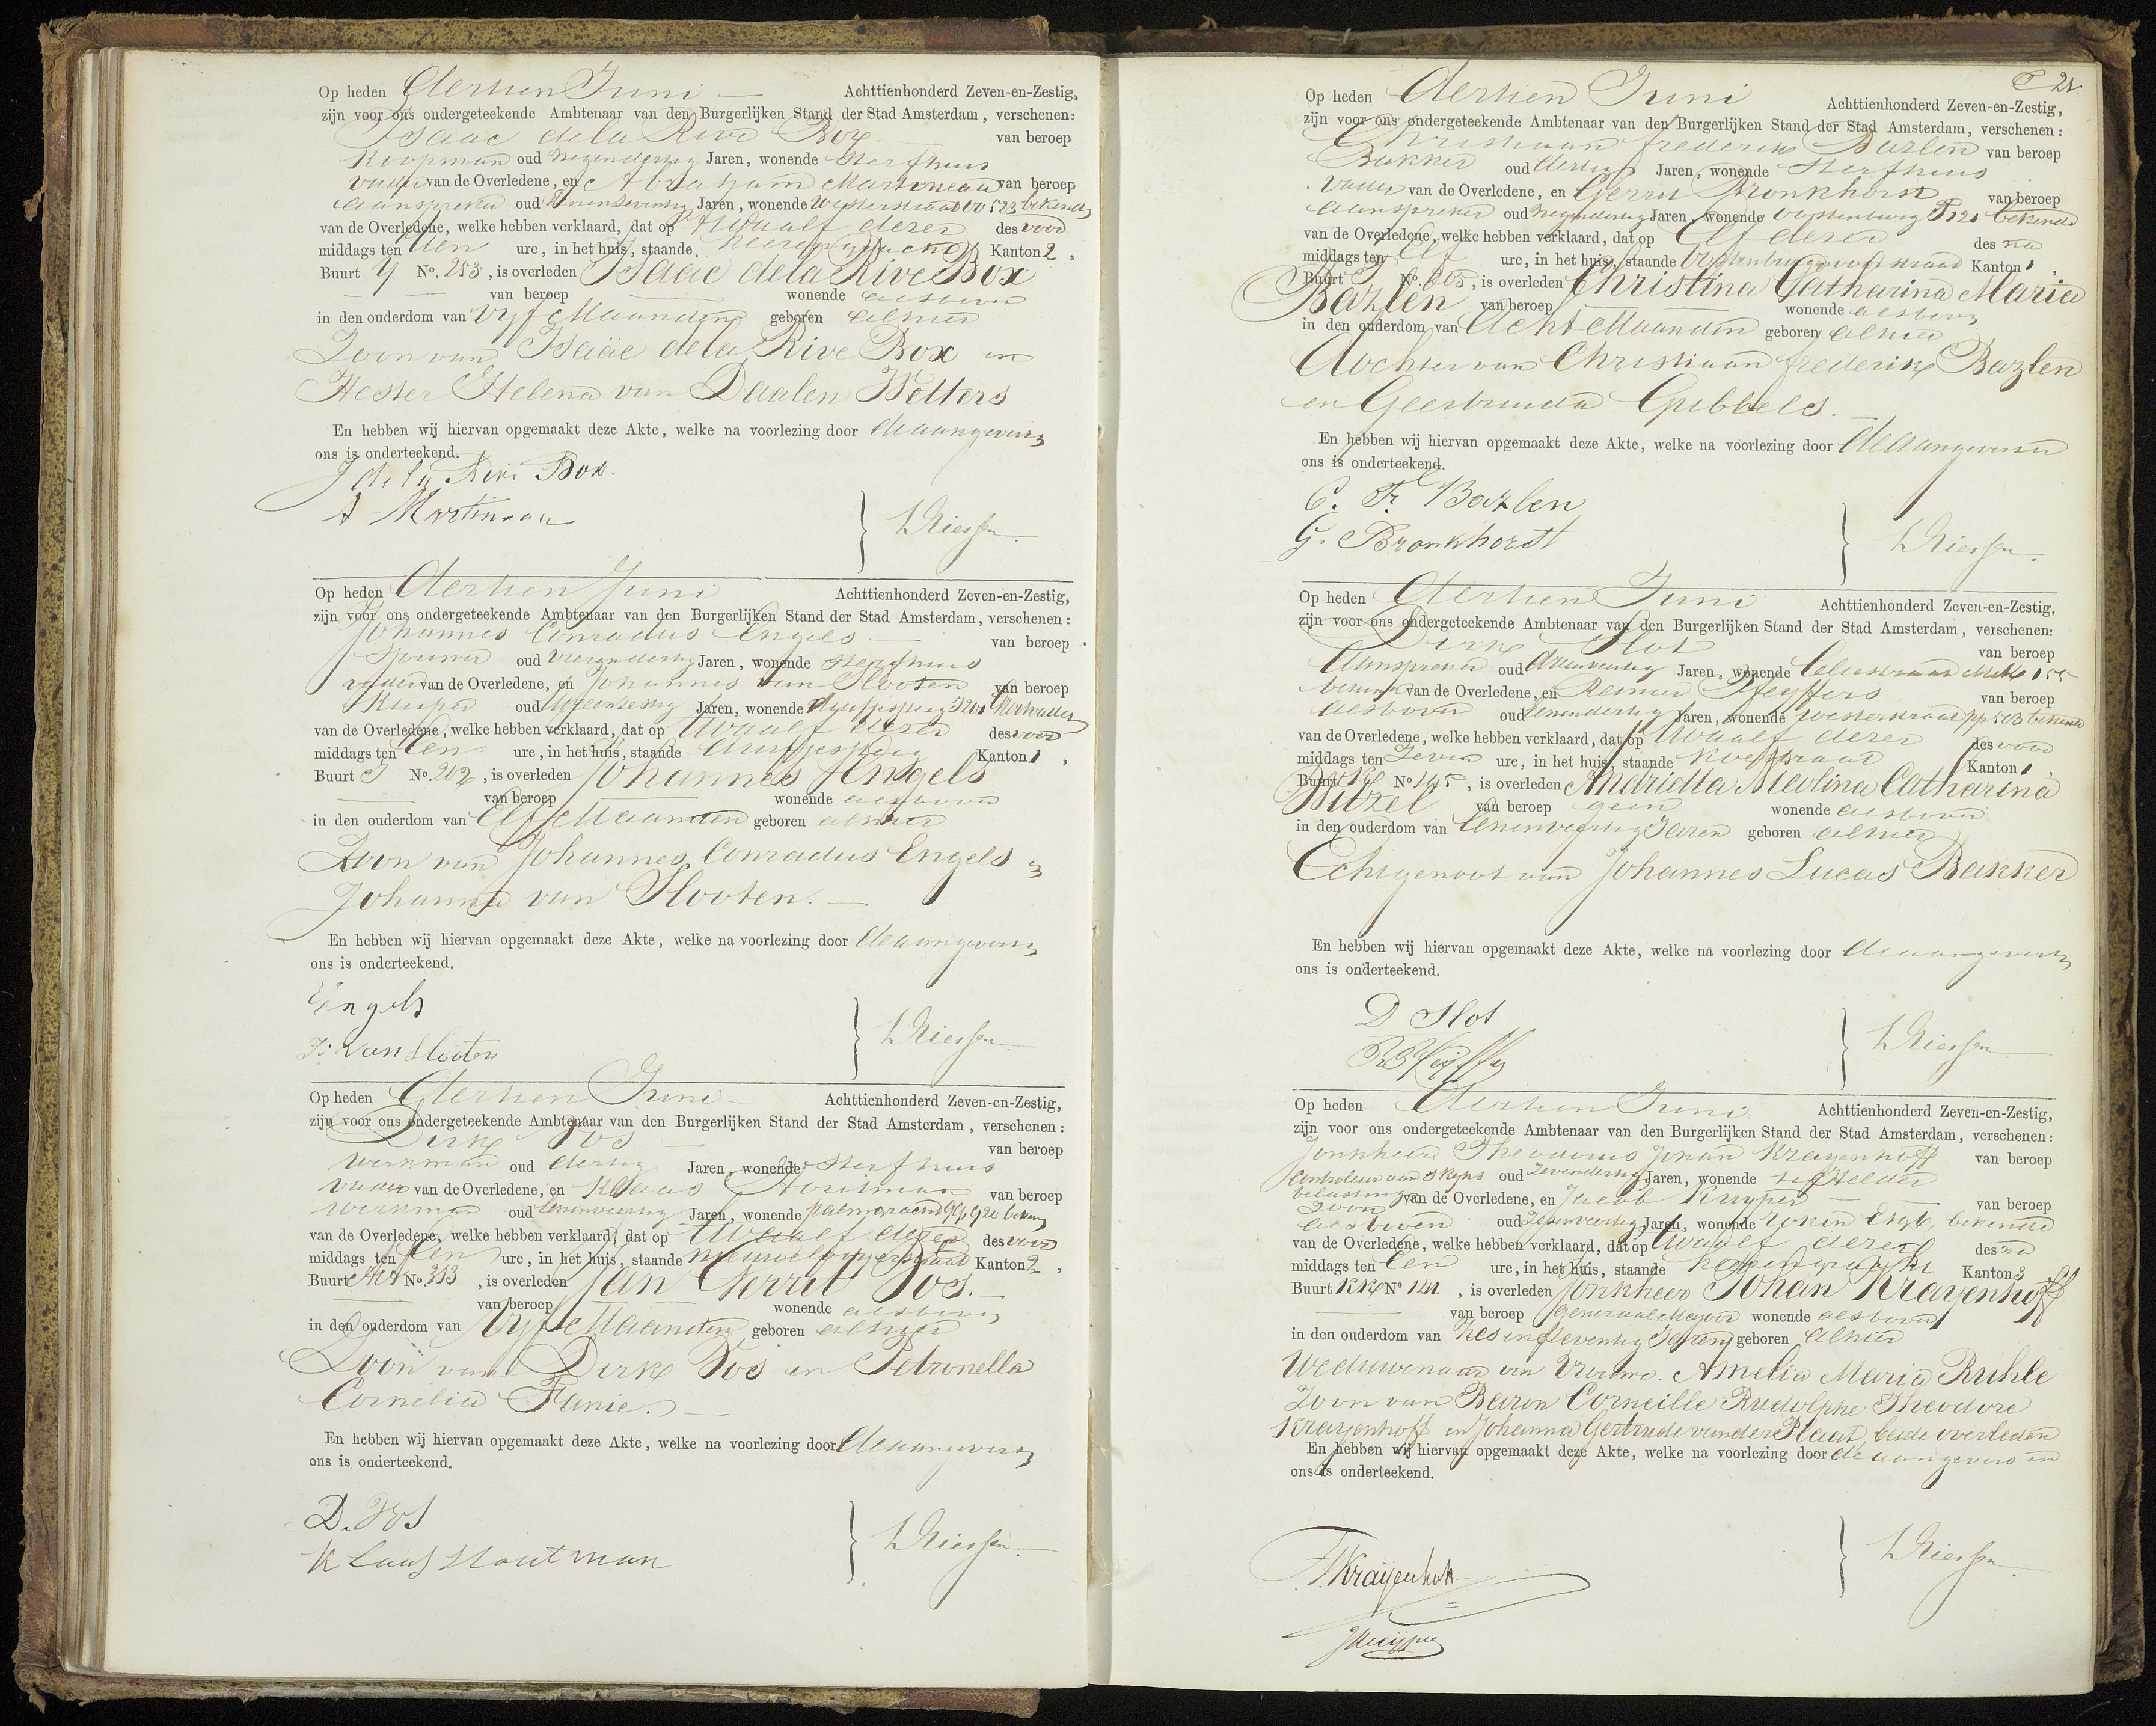 Op heden Dertien Juni Achttienhonderd Zeven-en-Zestig,
zijn voor ons ondergeteekende Ambtenaar van den Burgerlijken Stand der Stad Amsterdam, verschenen:
Isaac de la Rive Box van beroep
Koopman oud Negendertig Jaren, wonende Sterfhuis
vader van de Overledene, en Abraham Martineau van beroep
aanspreker oud Jaren, wonende Westerstraat 523 bekende
van de Overledene, welke hebben verklaard, dat op Twaalf dezer des voor
middags ten tien ure, in het huis, staande Heeregracht Kanton 2,
Buurt Y No. 253, is overleden Isaac de la Rive Box
van beroep wonende alsboven
in den ouderdom van Vyf Maanden geboren alhier
Zoon van Isaäc de la Rive Box en
Hester Helena van Daalen Wetters
En hebben wij hiervan opgemaakt deze Akte, welke na voorlezing door de aangevers en
ons is onderteekend.
J de la Rive Box.
A Martineau
Op heden Dertien Juni Achttienhonderd Zeven-en-Zestig,
zijn voor ons ondergeteekende Ambtenaar van den Burgerlijken Stand der Stad Amsterdam, verschenen:
Johannes Conradus Engels van beroep
oud Vierendertig Jaren, wonende Sterfhuis
vader van de Overledene, en Johannes van Slooten van beroep
Kuiper oud Jaren, wonende
van de Overledene, welke hebben verklaard, dat op Twaalf dezer des voor
middags ten een ure, in het huis, staande Kanton 1,
Buurt J No. 202, is overleden Johannes Engels
van beroep wonende alsboven
in den ouderdom van Elf Maanden geboren alhier
Zoon van Johannes Conradus Engels en
Johanna van Slooten.
En hebben wij hiervan opgemaakt deze Akte, welke na voorlezing door de aangevers en
ons is onderteekend.
Engels
J. van Slooten
Op heden Dertien Juni Achttienhonderd Zeven-en-Zestig,
zijn voor ons ondergeteekende Ambtenaar van den Burgerlijken Stand der Stad Amsterdam, verschenen:
Dirk Vos van beroep
Werkman oud dertig Jaren, wonende Sterfhuis
vader van de Overledene, en Klaas Houtman van beroep
werkman oud Eenenveertig Jaren, wonende Palmgracht 920 bekende
van de Overledene, welke hebben verklaard, dat op Twaalf dezer des voor
middags ten tien ure, in het huis, staande Nieuwe Looyerstraat Kanton 2,
Buurt No. 313, is overleden Jan Gerrit Vos.
van beroep wonende alsboven
in den ouderdom van Vyf Maanden geboren alhier
Zoon van Dirk Vos en Petronella
Cornelia Fanie.
En hebben wij hiervan opgemaakt deze Akte, welke na voorlezing door de aangevers en
ons is onderteekend.
D. Vos
Klaas Houtman
Op heden Dertien Juni Achttienhonderd Zeven-en-Zestig,
zijn voor ons ondergeteekende Ambtenaar van den Burgerlijken Stand der Stad Amsterdam, verschenen:
Christiaan Frederik Bazlen van beroep
Bakker oud dertig Jaren, wonende Sterfhuis
vader van de Overledene, en Gerrit Bronkhorst van beroep
aanspreker oud Negendertig Jaren, wonende Oostenburg 120 bekende
van de Overledene, welke hebben verklaard, dat op Elf dezer des na
middags ten Elf ure, in het huis, staande Oostenburgervoorstraat Kanton 1,
Buurt No. 205, is overleden Christina Catharina Maria
Bazlen van beroep wonende alsboven
in den ouderdom van Acht Maanden geboren alhier
Dochter van Christiaan Frederik Bazlen
en Geertruida Gribbels.
En hebben wij hiervan opgemaakt deze Akte, welke na voorlezing door de aangevers en
ons is onderteekend.
C. Fr. Bazlen
G. Bronkhorst
Op heden Dertien Juni Achttienhonderd Zeven-en-Zestig,
zijn voor ons ondergeteekende Ambtenaar van den Burgerlijken Stand der Stad Amsterdam, verschenen:
Dirk Slot van beroep
Aanspreker oud Drieenveertig Jaren, wonende
bekende van de Overledene, en Reinier Pfeyffers van beroep
alsboven oud Eenendertig Jaren, wonende Westerstraat pp 503 bekende
van de Overledene, welke hebben verklaard, dat op Twaalf dezer des voor
middags ten Zeven ure, in het huis, staande Kanton 1,
Buurt No 145, is overleden Andrietta Meolina Catharina
Witzel van beroep geen wonende alsboven
in den ouderdom van Eenenveertig Jaren geboren alhier
Echtgenoot van Johannes Lucas Bakker
En hebben wij hiervan opgemaakt deze Akte, welke na voorlezing door de aangevers en
ons is onderteekend.
D Slot
Op heden Dertien Juni Achttienhonderd Zeven-en-Zestig,
zijn voor ons ondergeteekende Ambtenaar van den Burgerlijken Stand der Stad Amsterdam, verschenen:
Jonkheer Theodorus Johan Krayenhoff van beroep
Controleur aan 's Ryks oud Zevendertig Jaren, wonende te Helder
belastingen
Zoon van de Overledene, en Jacob Kuyper van beroep
alsboven oud Zesenveertig Jaren, wonende Rokin bekende
van de Overledene, welke hebben verklaard, dat op Twaalf dezer des na
middags ten Een ure, in het huis, staande Keizersgracht Kanton 3
Buurt KK No 141., is overleden Jonkheer Johan Krayenhoff
van beroep Generaal Mayoor wonende alsboven
in den ouderdom van Zesenzeventig Jaren geboren alhier
Weduwenaar van Vrouwe Amelia Maria Ruhle
Zoon van Baron Corneille Rudolphe Theodore
Krayenhoff en Johanna Gertrude van der Plaat, beide overleden
En hebben wij hiervan opgemaakt deze Akte, welke na voorlezing door de aangevers en
ons is onderteekend.
Kraijenhoff
JKuijper